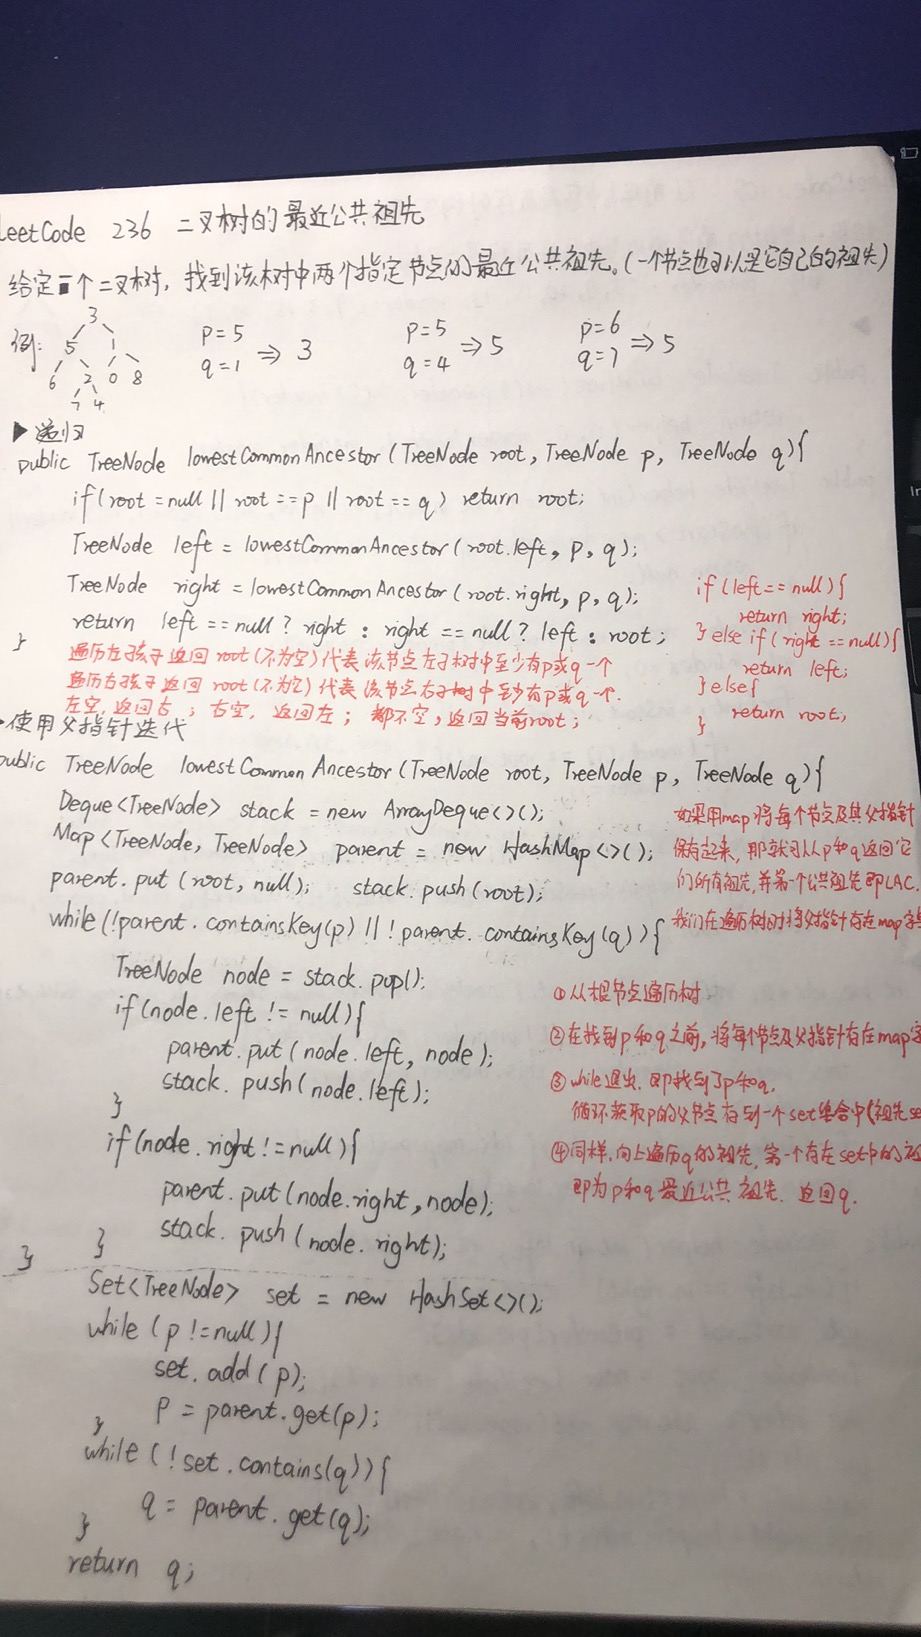 LeetCode 236 二叉树的最近公共祖先
给定一个二叉树，找到该树中两个指定节点的最近公共祖先。(一个节点也可以是它自己的祖先)
例:
3
5 1
6 2 0 8
7 4
p=5
q=1 ⇒ 3
p=5
q=4 ⇒ 5
p=6
q=7 ⇒ 5
▶ 递归
public TreeNode lowestCommonAncestor (TreeNode root, TreeNode p, TreeNode q){
if(root=null || root==p || root==q) return root;
TreeNode left = lowestCommonAncestor (root.left, p, q);
TreeNode right = lowestCommonAncestor (root.right, p, q);
return left ==null? right : right ==null? left : root;
}
if (left== null){
return right;
} else if (right ==null){
return left;
}else{
return root;
}
遍历左孩子返回root(不为空)代表该节点左子树中至少有p或q一个
遍历右孩子返回root(不为空)代表该节点右子树中至少有p或q一个.
左空,返回右; 右空, 返回左; 都不空,返回当前root;
使用父指针迭代
public TreeNode lowestCommonAncestor (TreeNode root, TreeNode p, TreeNode q){
Deque<TreeNode> stack = new ArrayDeque<>();
Map <TreeNode, TreeNode> parent = new HashMap<>();
parent.put (root, null); stack.push(root);
while(!parent.containsKey(p) || !parent.containsKey(q)){
TreeNode node = stack.pop();
if(node.left != null){
parent.put (node.left, node);
stack.push(node.left);
}
if(node.right !=null){
parent.put(node.right, node);
stack.push(node.right);
}
}
如果用map将每个节点及其父指针
保存起来, 那就可以从p和q返回它
们所有祖先,并第一个公共祖先即LAC.
我们在遍历树时将父指针存在map字
①从根节点遍历树
②在找到p和q之前,将每个节点及父指针存在map字
③while退出,即找到了p和q,
循环获取p的父节点存到一个set集合中(祖先se
④同样,向上遍历q的祖先,第一个存在set中的祖
即为p和q最近公共祖先. 返回q.
Set<TreeNode> set = new HashSet<>();
while (p !=null){
set.add(p);
p = parent.get(p);
}
while (!set.contains(q)){
q = parent.get(q);
}
return q;